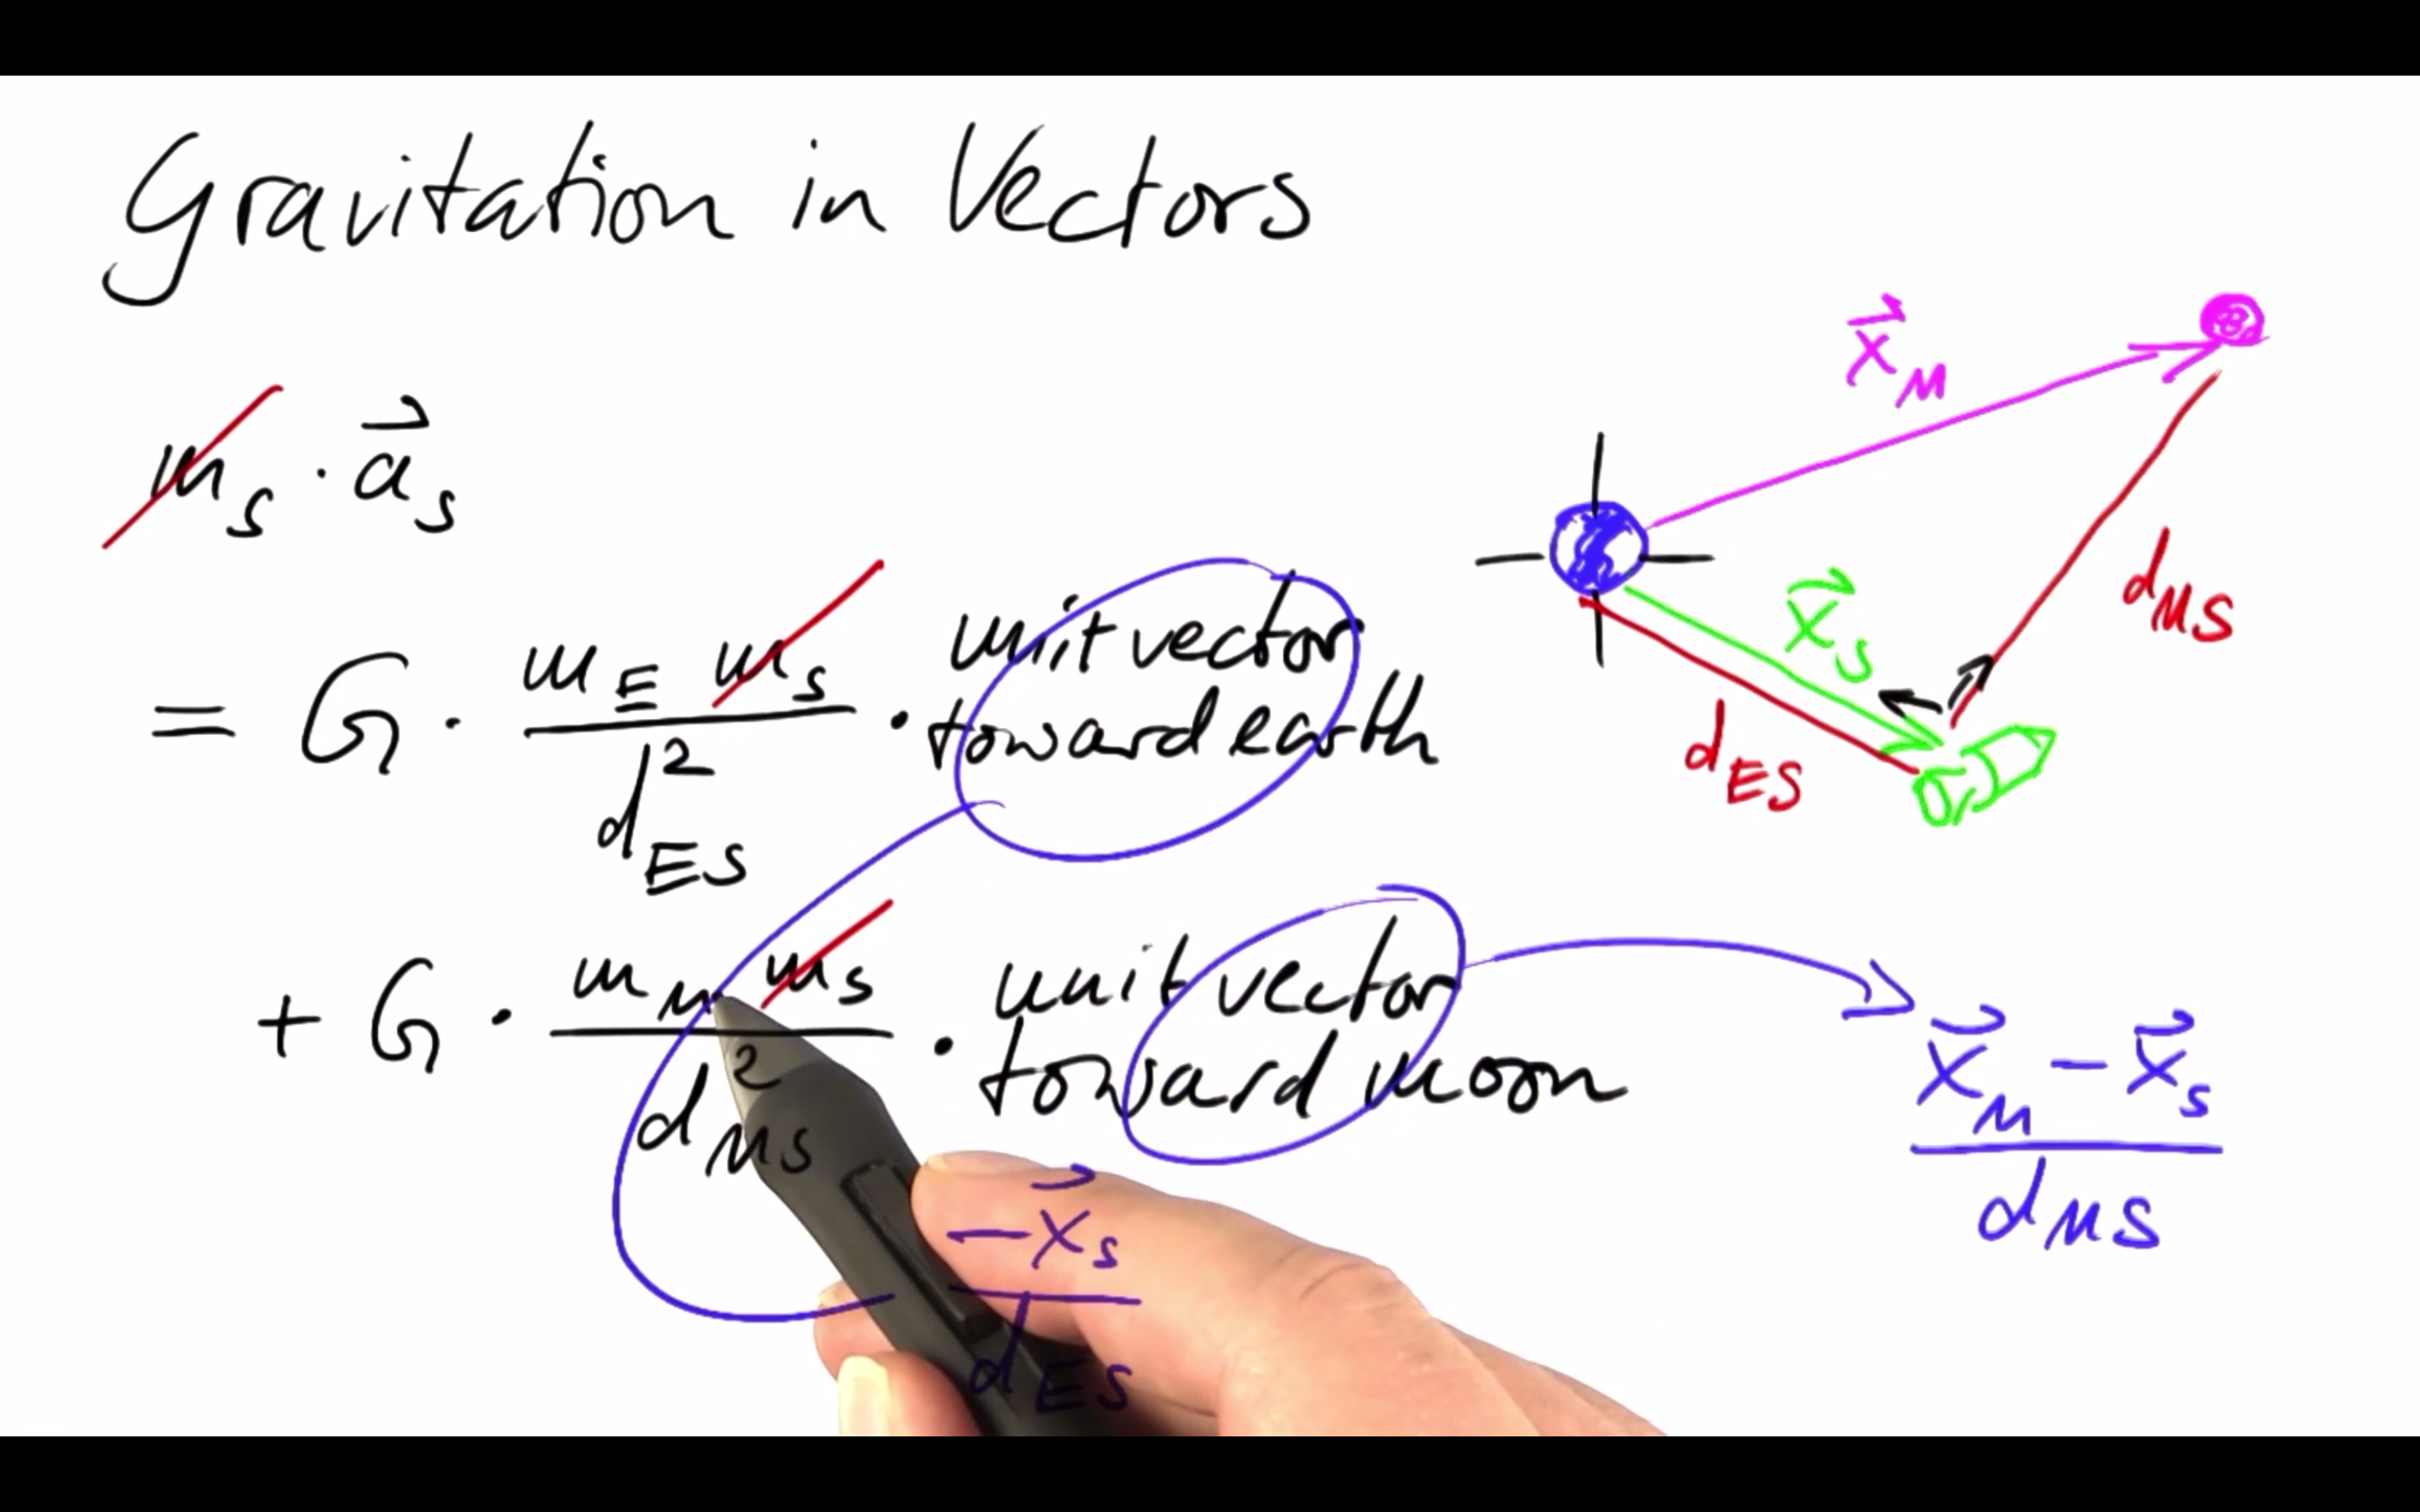 Gravitation in Vectors
m_S · a⃗_S
= G · (m_E m_S) / (d²_ES) · unit vector toward earth
+ G · (m_M m_S) / (d²_MS) · unit vector toward moon
(x⃗_M − x⃗_S) / d_MS
−x⃗_S / d_ES
x⃗_M
x⃗_S
d_MS
d_ES